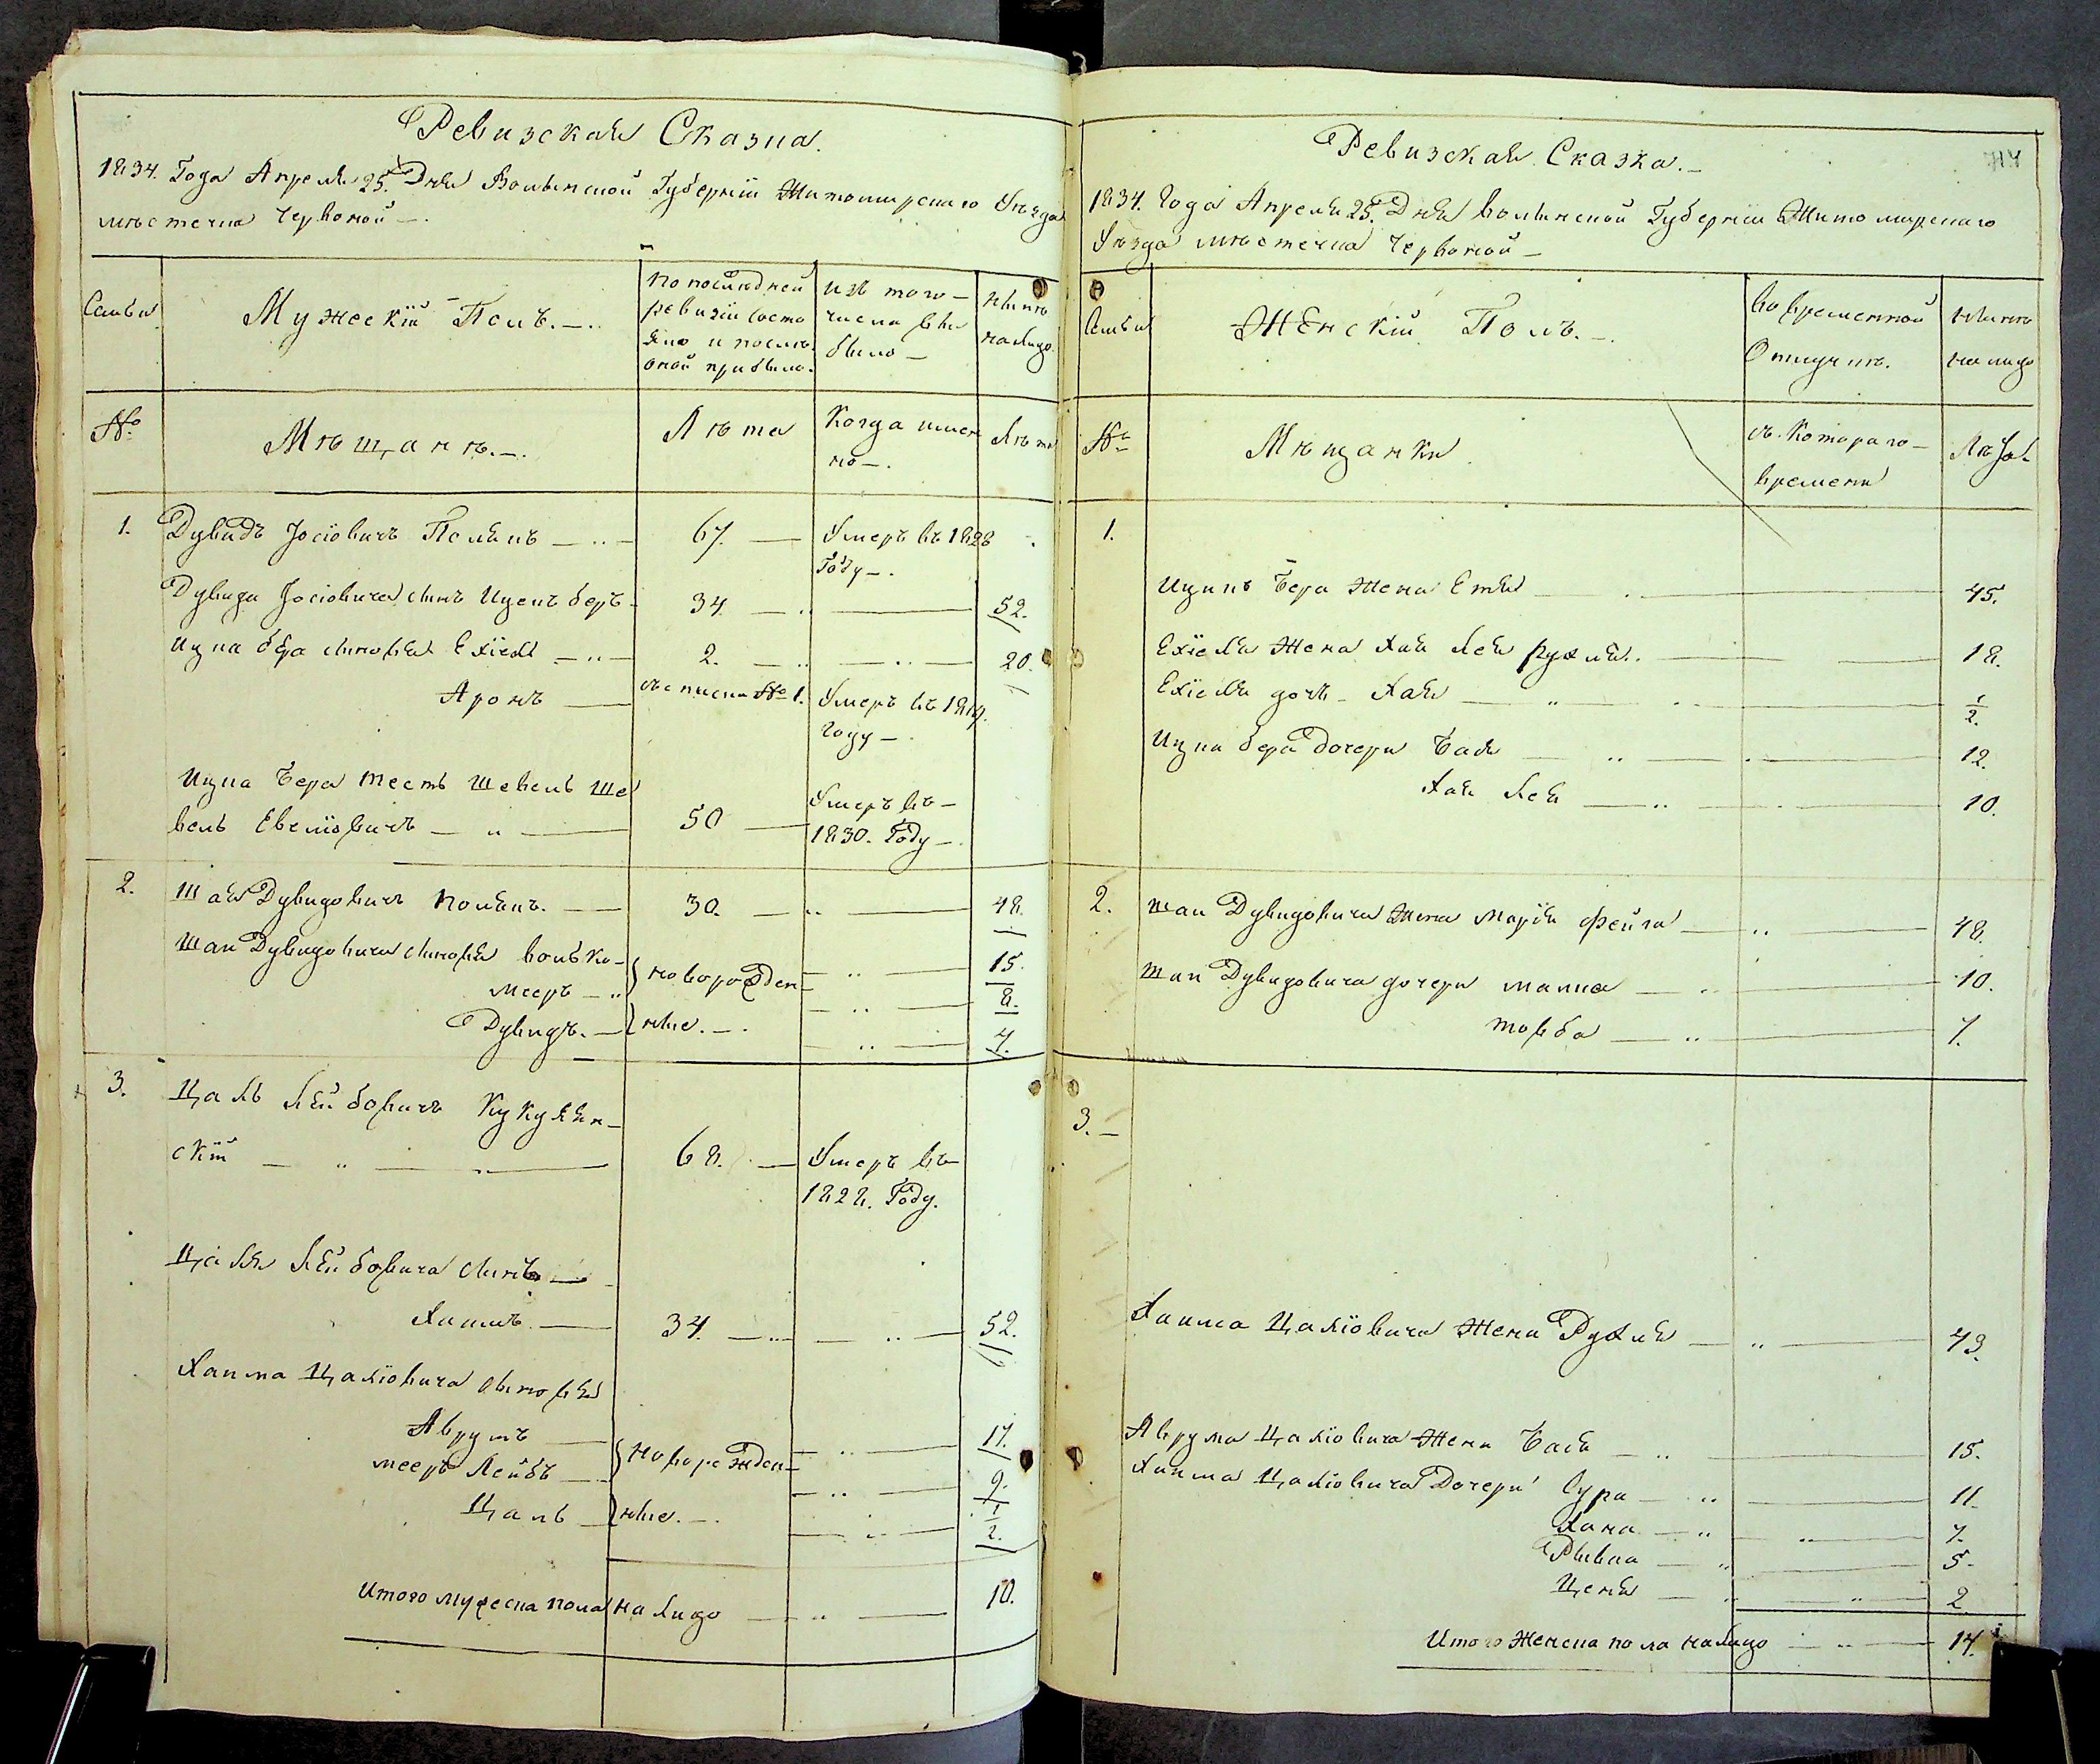 Ревизская Сказка.
1834. Года Апреля 25. Дня Волынской Губернїи Житомирскаго Уезда
мѣстечка Червоной —.
Семьи
Мужескїй Полъ. —..
По последней
ревизїи состо
яло и послѣ
оной прибыло.
изъ того —
числа вы
было —
Ныне
налицо
№
Мѣщанъ. —.
Лѣта
Когда имен
но —.
Лѣта
1. Дувидъ Іосїовичъ Полякъ — .. — 67. — Умеръ въ 1828
Году —.
Дувида Іосїовича сынъ Ицекъ беръ — 34. — .. — 52.
Ицка бера сыновья Ехїель — .. — 2. — .. — 20.
Аронъ — Умеръ въ 1819.
году —.
Ицка Бера тесть Шевель Ше
вель — .. — 50 — Умеръ въ —
1830. Году —.
2. Шая Дувидовичъ Полякъ. — 30. — .. — 48.
Шаи Дувидовича сыновья Волько — 15.
Мееръ — .. новорожден — .. — 8.
Дувидъ. — ные. —. — .. — 4.
3. Цаль Лейбовичъ Кукулян —
скїй — .. — 68. — Умеръ въ —
1828. Году.
Цаля Лейбовича сынъ —
Хаимъ. — 34. — .. — 52.
Хаима Цалїовича сыновья
Аврумъ — 17.
Мееръ Лейбъ — новорожден — .. — 9.
Цаль — ные. —. — .. — 1/2.
Итого мужеска пола на лицо — .. — 10.
Ревизская Сказка. —
717
1834. Года Апреля 25. Дня Волынской Губернїи Житомирскаго
Уезда мѣстечка Червоной —
Семьи
Женскїй Полъ. —.
Во временной
Отлучкѣ.
Ныне
на лицо
№
Мѣщанки.
съ Котораго —
времени
Лѣта
1.
Ицкъ Бера жена Етя — 45.
Ехїеля жена Хая Лея Рухля. — 18.
Ехїеля дочь — Хая — .. — 1/2.
Ицка бера Дочери Бася — .. — 12.
Хая Лея — .. — 10.
2. Шаи Дувидовича жена Марїя Фейга — .. — 48.
Шаи Дувидовича дочери Малка — .. — 10.
Товба — .. — 7.
3. —
Хаима Цалїовича Жена Рухля — .. — 43.
Аврума Цалїовича Жена Бася — .. — 15.
Хаима Цалїовича Дочери Сура — .. — 11.
Хана — .. — 7.
Рывка — .. — 5.
Ценя — .. — 2
Итого Женска пола на лицо — .. — 14.